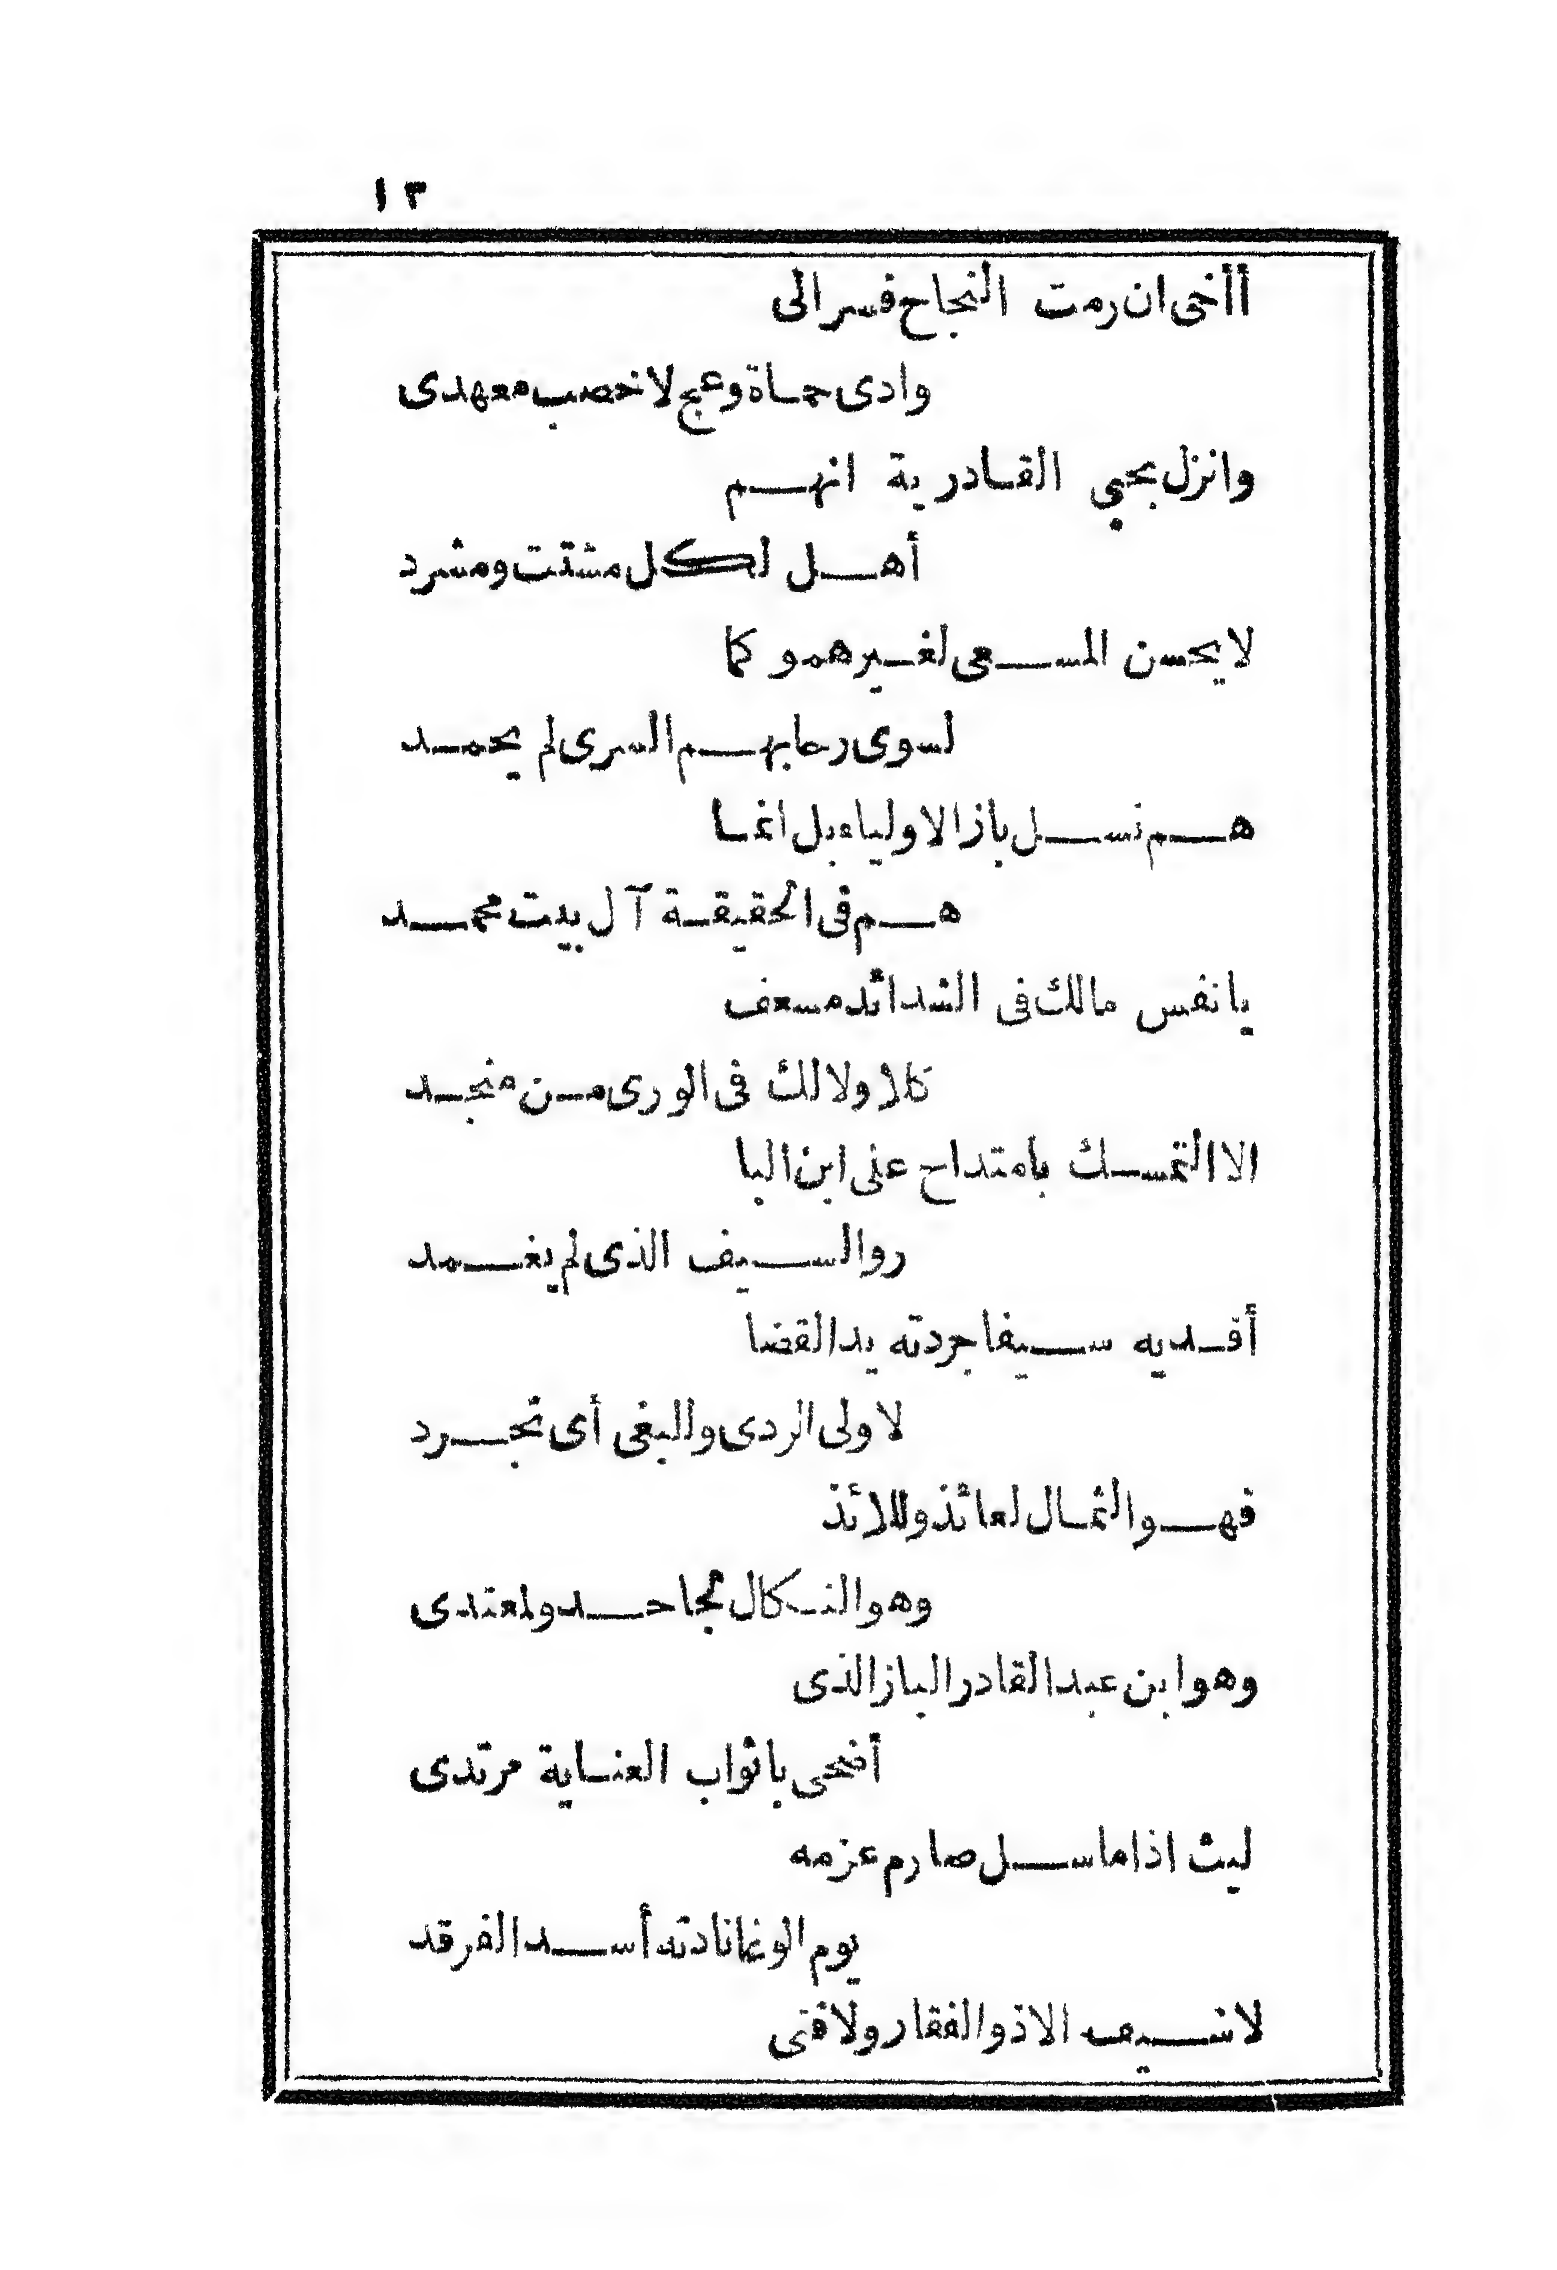 ١٣
أأخى ان رمت النجاح فسر الى
وادى حماة وعج لاخصب معهدى
وانزل بحيى القادرية انهم
أهل لكل مشتت ومشرد
لا يحسن المسعى لغيرهمو كما
لسوى رحابهم السرى لم يحمد
هم نسل باز الاولياء بل انما
هم فى الحقيقة آل بيت محمد
يا نفس مالك فى الشدائد مسعف
كلا ولا لك فى الورى من منجد
الا التمسك بامتداح على ابن البا
ر والسيف الذى لم يغمد
أفديه سيفا جردته يد القضا
لاولى الردى وللبغى أى تجرد
فهو الثمال لعائذ وللائذ
وهو النكال لجاحد ولمعتدى
وهو ابن عبد القادر الباز الذى
أضحى باثواب العناية مرتدى
ليث اذا ما سل صارم عزمه
يوم الوغا نادته أسد الفرقد
لا سيف الا ذو الفقار ولا فتى